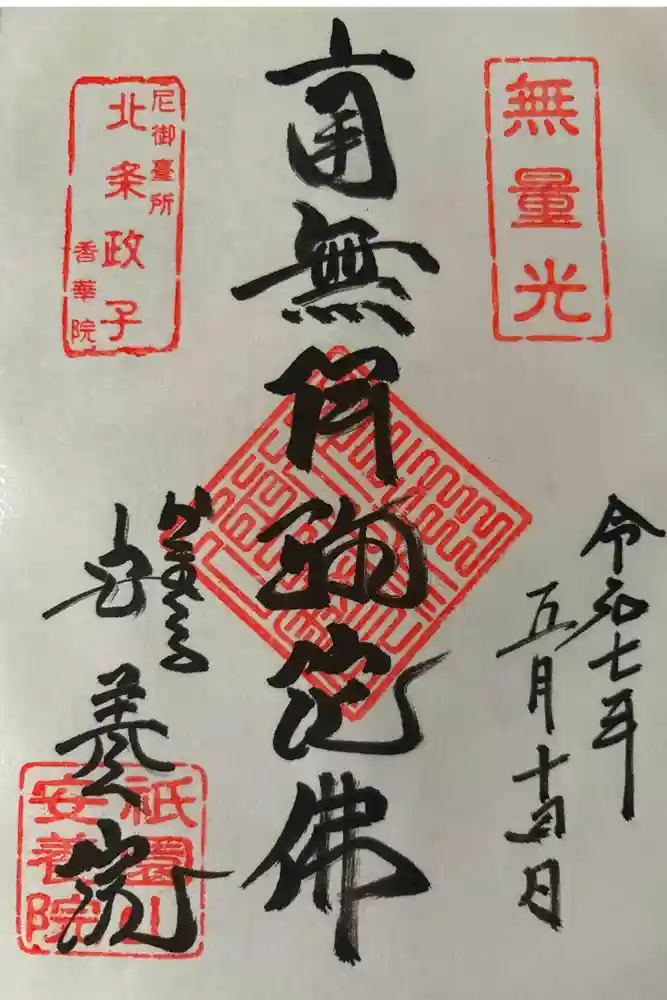 無量光
令和七年
五月
南無阿弥陀佛
尼御臺所
北条政子
香華院
安養院
祇園山
安養院